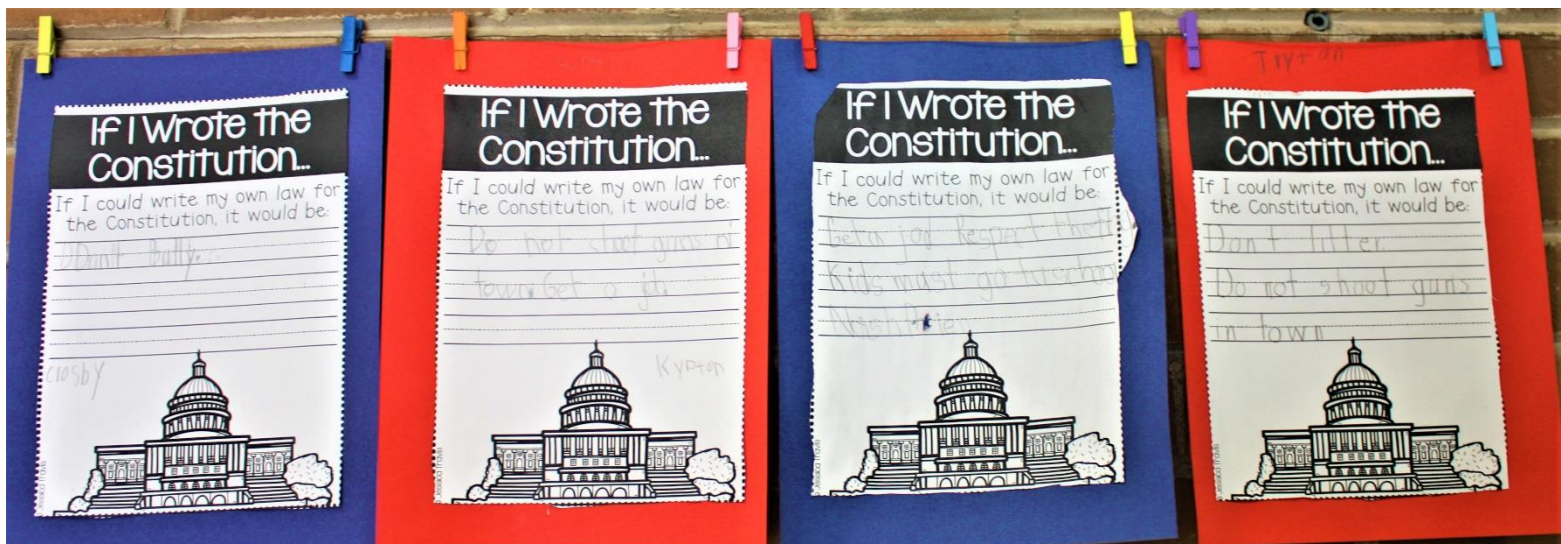 If I Wrote the
Constitution...
If I could write my own law for
the Constitution, it would be:
Don't Bully.
Crosby
If I Wrote the
Constitution...
If I could write my own law for
the Constitution, it would be:
Do not shoot guns n
town. Get a
Kypton
If I Wrote the
Constitution...
If I could write my own law for
the Constitution, it would be:
Get a Respect the
Kids must go
Trytan
If I Wrote the
Constitution...
If I could write my own law for
the Constitution, it would be:
Don't litter
Do not shoot guns
in town